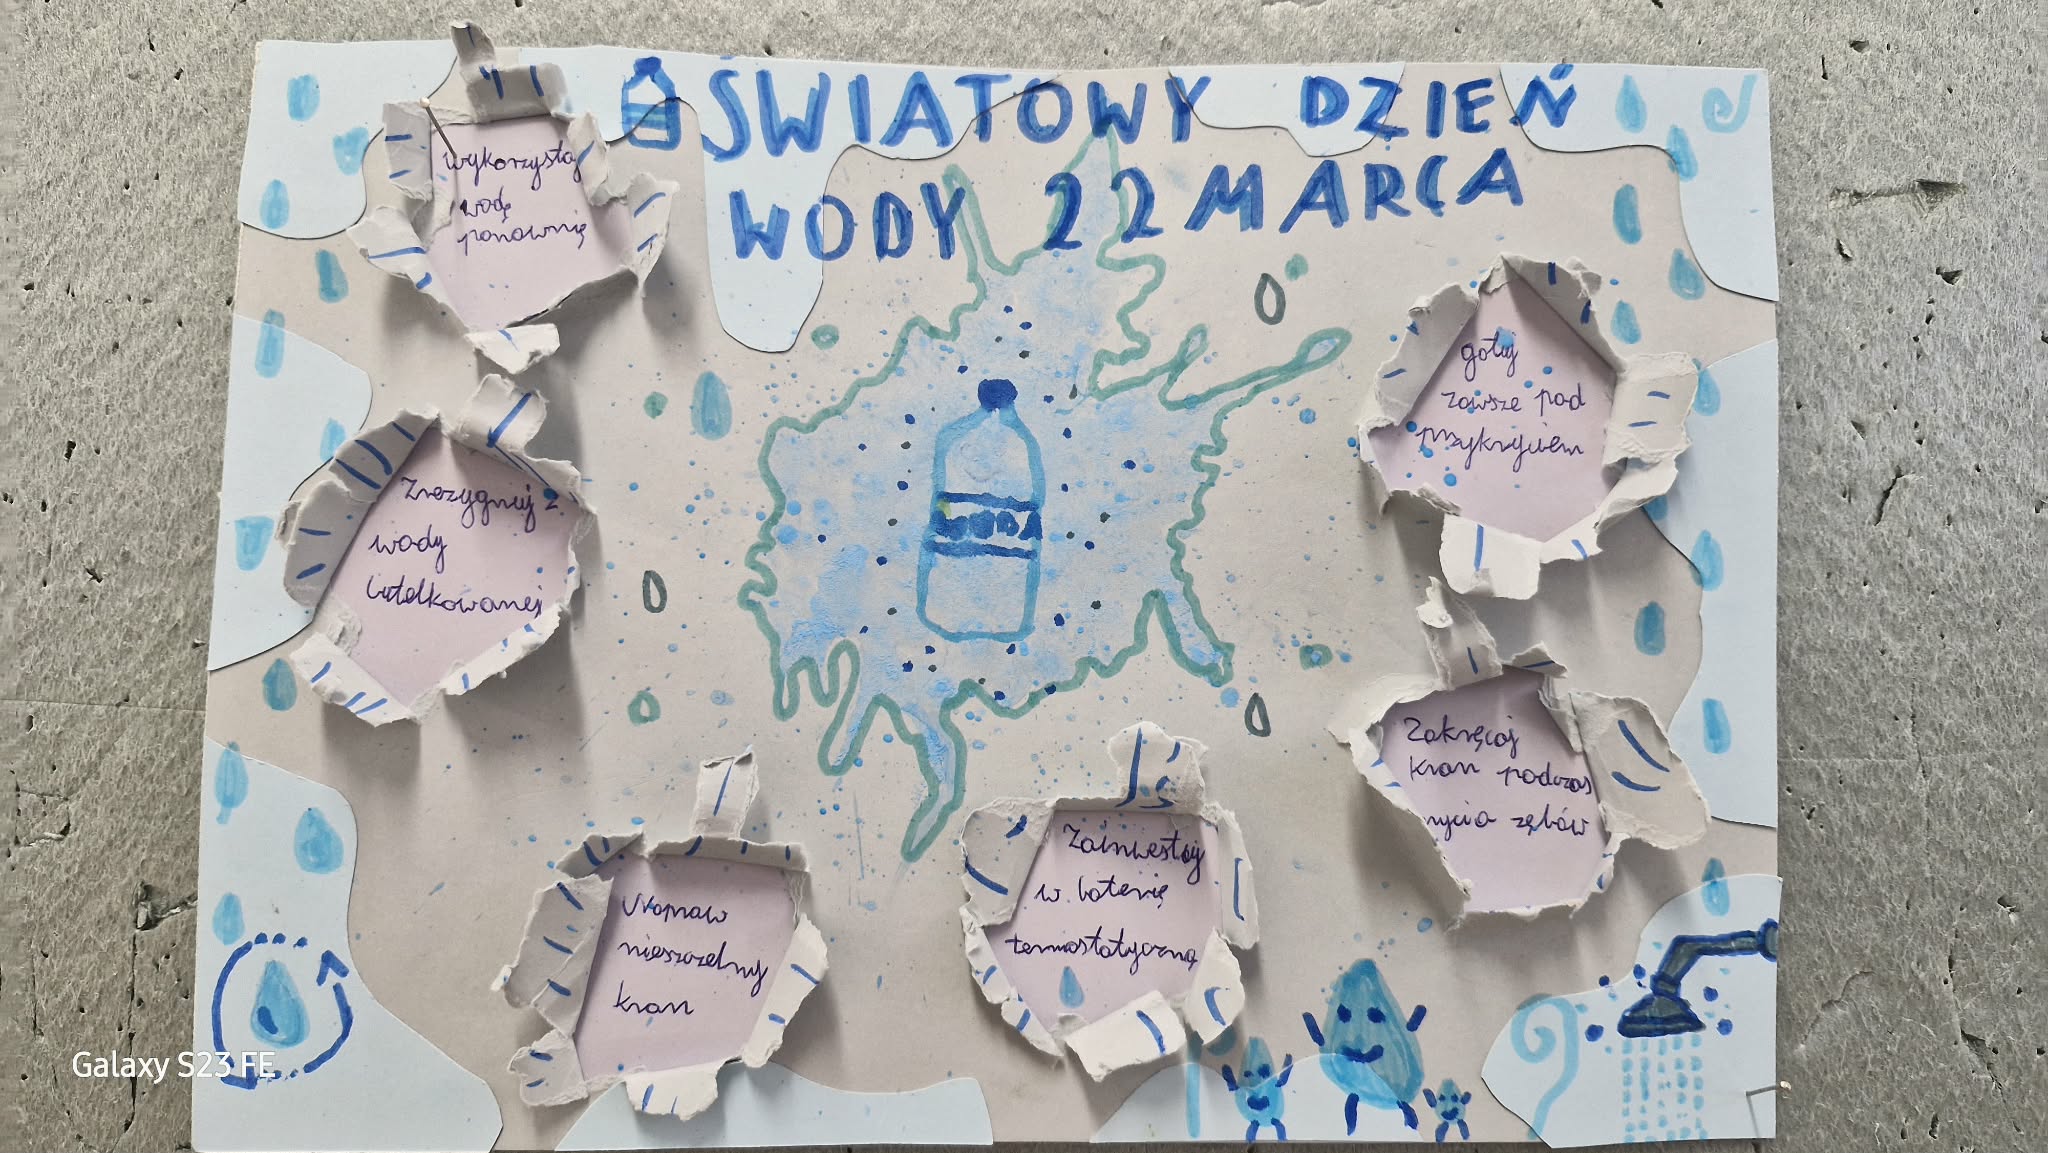 ŚWIATOWY DZIEŃ
WODY 22 MARCA
wykorzystaj
wodę
ponownię
Zrezygnuj z
wody
butelkowanej
WODA
gotuj
zawsze pod
przykryciem
Zakręcaj
kran podczas
mycia zębów
Napraw
nieszczelny
kran
Zainwestuj
w baterię
termostatyczną
Galaxy S23 FE